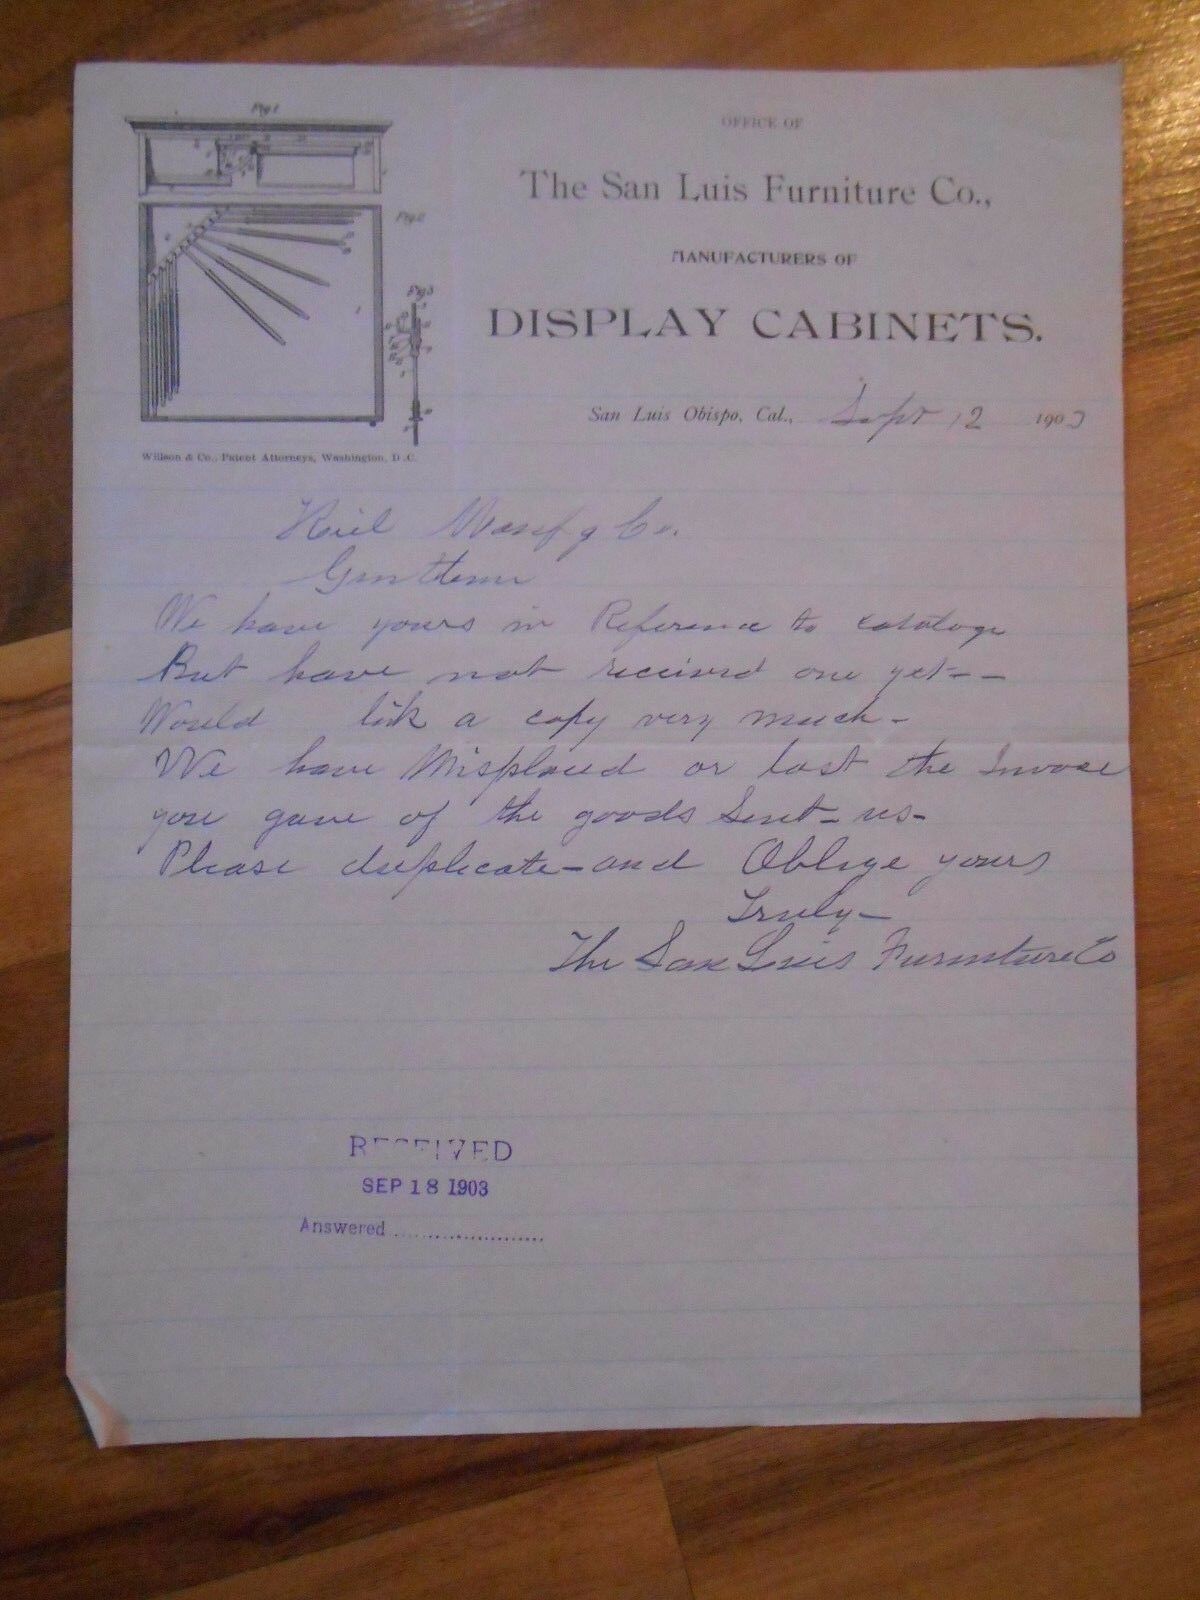 Fig 1
OFFICE OF
The San Luis Furniture Co.,
Fig 2
MANUFACTURERS OF
Fig 3
DISPLAY CABINETS.
San Luis Obispo, Cal., Sept 12 1903
Willson & Co., Patent Attorneys, Washington, D.C.
Manfg Co.
Gentlemen
We have yours in Reference to cataloge
But have not received one yet--
Would like a copy very much-
We have Misplaced or lost the Invoce
you gave of the goods Sent-us-
Please duplicate-and Oblige yours
Truly-
The San Luis Furniture Co
RECEIVED
SEP 18 1903
Answered ........................